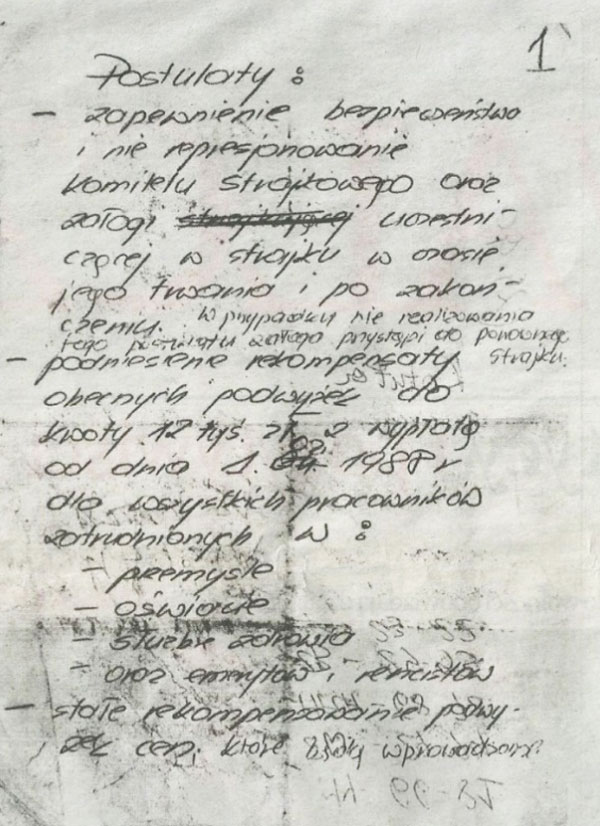 1
Postulaty :
– zapewnienie bezpieczeństwa
i nie represjonowanie
komitetu strajkowego oraz
załogi strajkującej uczestni-
czącej w strajku w czasie
jego trwania i po zakoń-
czeniu. W przypadku nie realizowania
tego postulatu załoga przystąpi do ponownego
strajku.
– podniesienie rekompensaty
obecnych podwyżek do
kwoty 12 tyś. zł. z wypłatą
od dnia 1. 02. 1988 r
dla wszystkich pracowników
zatrudnionych w :
– przemyśle
– oświacie
– służbie zdrowia
– oraz emerytów i rencistów
– stałe rekompensowanie podwy-
żek cen, które będą wprowadzone.